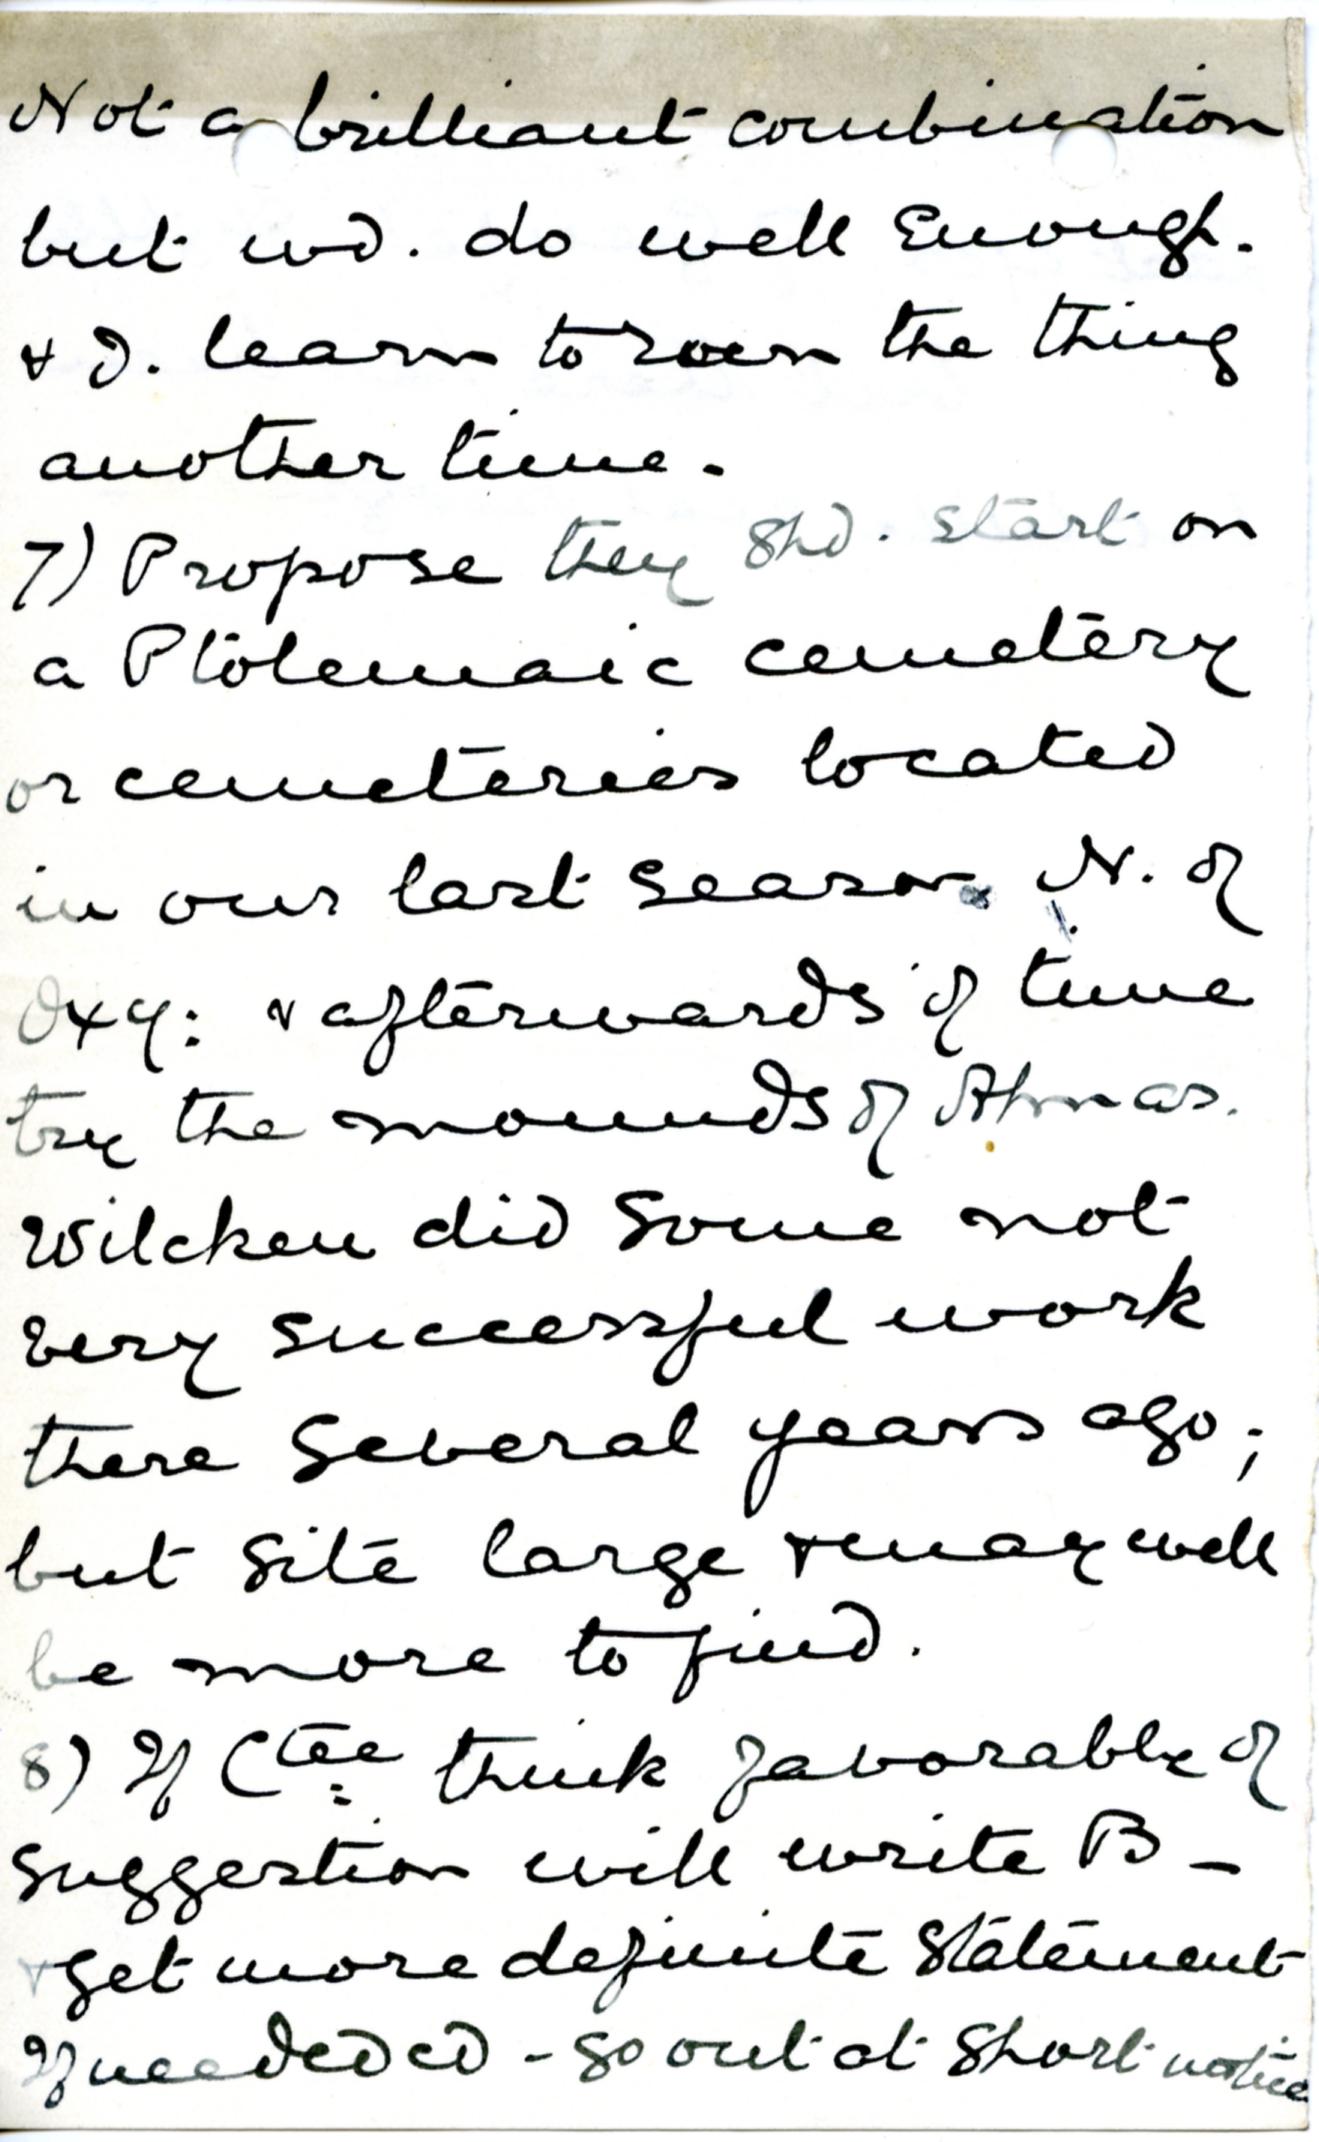 Not a brilliant combination
but wd. do well enough.
& J. learn to run the thing
another time.
7) Propose they shd. start on
a Ptolemaic cemetery
or cemeteries located
in our last season N. of
Oxy: & afterwards if time
try the mounds of Ahnas.
Wilcken did some not
very successful work
there several years ago;
but site large & may well
be more to find.
8) If Ctee think favorably of
suggestion will write B –
& get more definite statement
If needed – go out at short notice